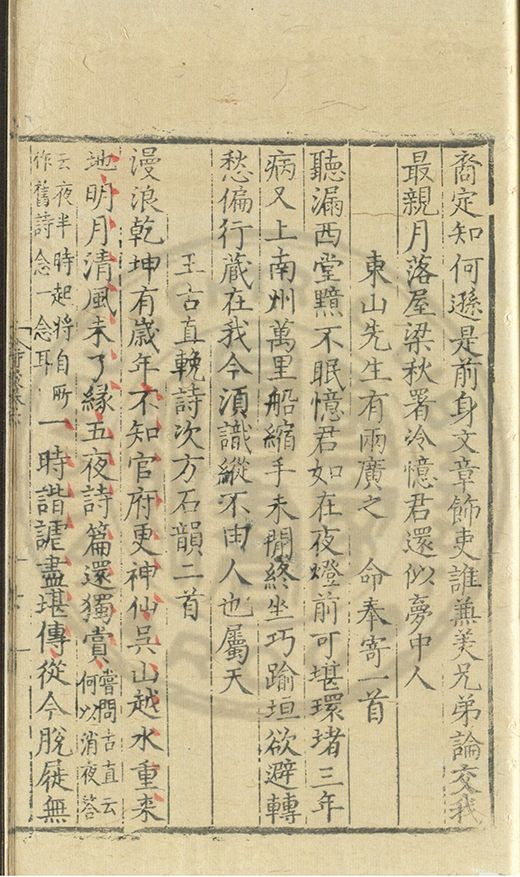 裔定知何遜是前身文章飾吏誰兼美兄弟論交我
最親月落屋梁秋署冷憶君還似夢中人
東山先生有兩廣之　命奉寄一首
聽漏西堂黯不眠憶君如在夜燈前可堪環堵三年
病又上南州萬里船縮手未開終坐巧踰垣欲避轉
愁偏行藏在我今須識縱不由人也屬天
王古直輓詩次方石韻二首
漫浪乾坤有歲年不知官府更神仙吳山越水重來
地明月清風未了緣五夜詩篇還獨賞嘗問古直云何以消夜荅
云夜半時起將自所作舊詩念一念耳一時諧謔盡堪傳從今脫屣無